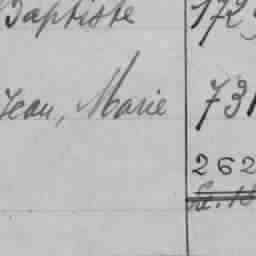 Baptiste 172
Jean, Marie 731
262